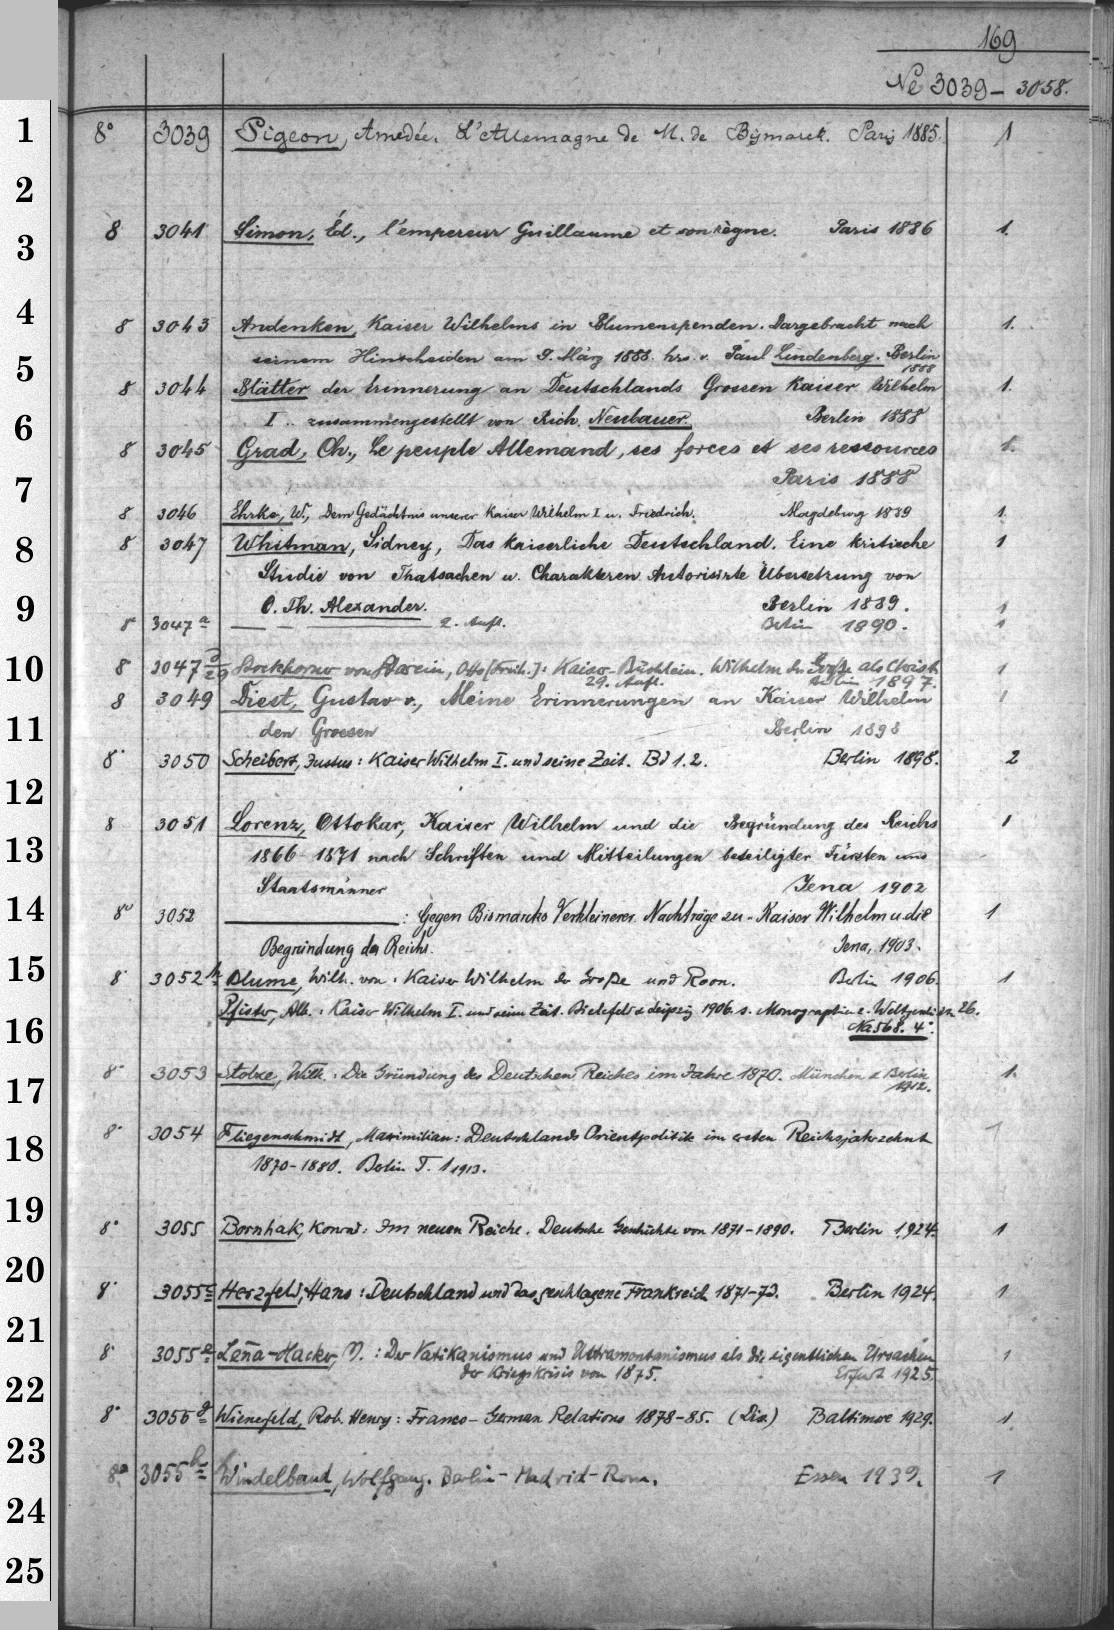 169
№ 3039 – 3058.
1 8° 3039 Pigeon, Amedée. L'Allemagne de M. de Bismarck. Paris 1885. 1
2
3 8 3041 Simon, Éd., l'empereur Guillaume et son règne. Paris 1886 1.
4 8 3043 Andenken, Kaiser Wilhelms in Blumenspenden. Dargebracht nach 1.
5 seinem Hinscheiden am 9. März 1888. hrs. v. Paul Lindenberg. Berlin
1888
8 3044 Blätter der Erinnerung an Deutschlands Grossen Kaiser Wilhelm 1.
6 I.. zusammengestellt von Rich. Neubauer. Berlin 1888
8 3045 Grad, Ch., Le peuple Allemand, ses forces et ses ressources 1.
7 Paris 1888
8 3046 Ehrke, W., Dem Gedächtnis unserer Kaiser Wilhelm I u. Friedrich. Magdeburg 1889 1.
8 8 3047 Whitman, Sidney, Das kaiserliche Deutschland. Eine kritische 1
Studie von Thatsachen u. Charakteren. Autorisirte Übersetzung von
9 O. Th. Alexander. Berlin 1889. 1
8 3047 a — — — 2. Aufl. Berlin 1890. 1
10 8 3047 von Starein, Otto [Freih.]: Kaiser-Büchlein. Wilhelm der Große als Christ 1
29. Aufl. Berlin 1897.
8 3049 Diest, Gustav v., Meine Erinnerungen an Kaiser Wilhelm 1
11 den Grossen Berlin 1898
8° 3050 Scheibert, Justus: Kaiser Wilhelm I. und seine Zeit. Bd 1.2. Berlin 1898. 2
12
8 3051 Lorenz, Ottokar, Kaiser Wilhelm und die Begründung des Reichs 1
13 1866-1871 nach Schriften und Mitteilungen beteiligter Fürsten und
Staatsmänner Jena 1902
14 8° 3052 ———: Gegen Bismarcks Verkleinerer. Nachträge zu - Kaiser Wilhelm u. die 1
Begründung des Reichs. Jena, 1903.
15 8° 3052 k Blume, Wilh. von: Kaiser Wilhelm der Große und Roon. Berlin 1906. 1
Pfister, Alb.: Kaiser Wilhelm I. und seine Zeit. Bielefeld & Leipzig 1906. s. Monographien z. Weltgeschichte 26.
16 Na 568. 4°.
17 8° 3053 Stolze, Wilh.: Die Gründung des Deutschen Reiches im Jahre 1870. München & Berlin 1.
1912.
18 8° 3054 Fliegenschmidt, Maximilian: Deutschlands Orientpolitik im ersten Reichsjahrzehnt 1
1870-1880. Berlin T. 1 1913.
19 8° 3055 Bornhak, Konrad: Im neuen Reiche. Deutsche Geschichte von 1871-1890. Berlin 1924. 1
20 8° 3055 c Herzfeld, Hans: Deutschland und das geschlagene Frankreich 1871-73. Berlin 1924. 1
21 8° 3055 e : Der Vatikanismus und Ultramontanismus als die eigentlichen Ursachen 1
22 der Kriegskrisis von 1875. Erfurt 1925.
8° 3055 g Wienefeld, Rob. Henry: Franco-German Relations 1878-85. (Diss.) Baltimore 1929. 1
23 8° 3055 h Windelband, Wolfgang. Berlin-Madrid-Rom. Essen 1939. 1
24
25